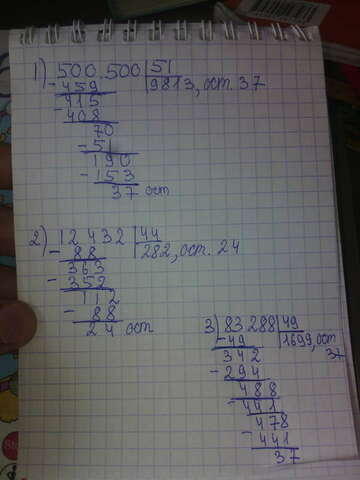 1) 500.500 | 51
- 459 | 9813, ост. 37
415
- 408
70
- 51
190
- 153
37 ост
2) 12432 | 44
- 88 | 282, ост. 24
363
- 352
112
- 88
24 ост
3) 83288 | 49
- 49 | 1699, ост
37
342
- 294
488
- 441
478
- 441
37